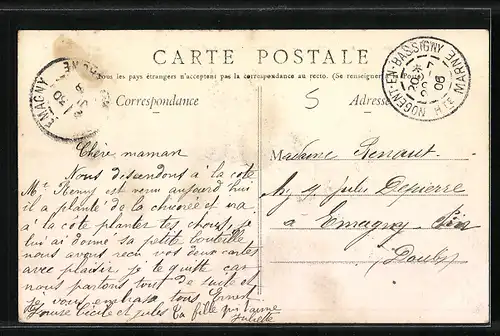 CARTE POSTALE
Tous les pays étrangers n'acceptent pas la correspondance au recto. (Se renseigner
Correspondance
5
Adresse
NOGENT-EN-BASSIGNY
HTE MARNE
06
EMAGNY
Chère maman
Nous descendons à la côte
Mr Remy est venu aujourd'hui
il a planté de la chicorée et va
à la côte planter tes choux, je
lui ai donné sa petite bouteille
nous avons recu vos deux cartes
avec plaisir, je te quitte car
nous partons tout de suite et
je vous embrasse tous, Ernest
Louise Cécile et Jules ta fille qui t'aime
Juliette
Madame Renaut
Jules Depierre
à Emagny
(Doubs)